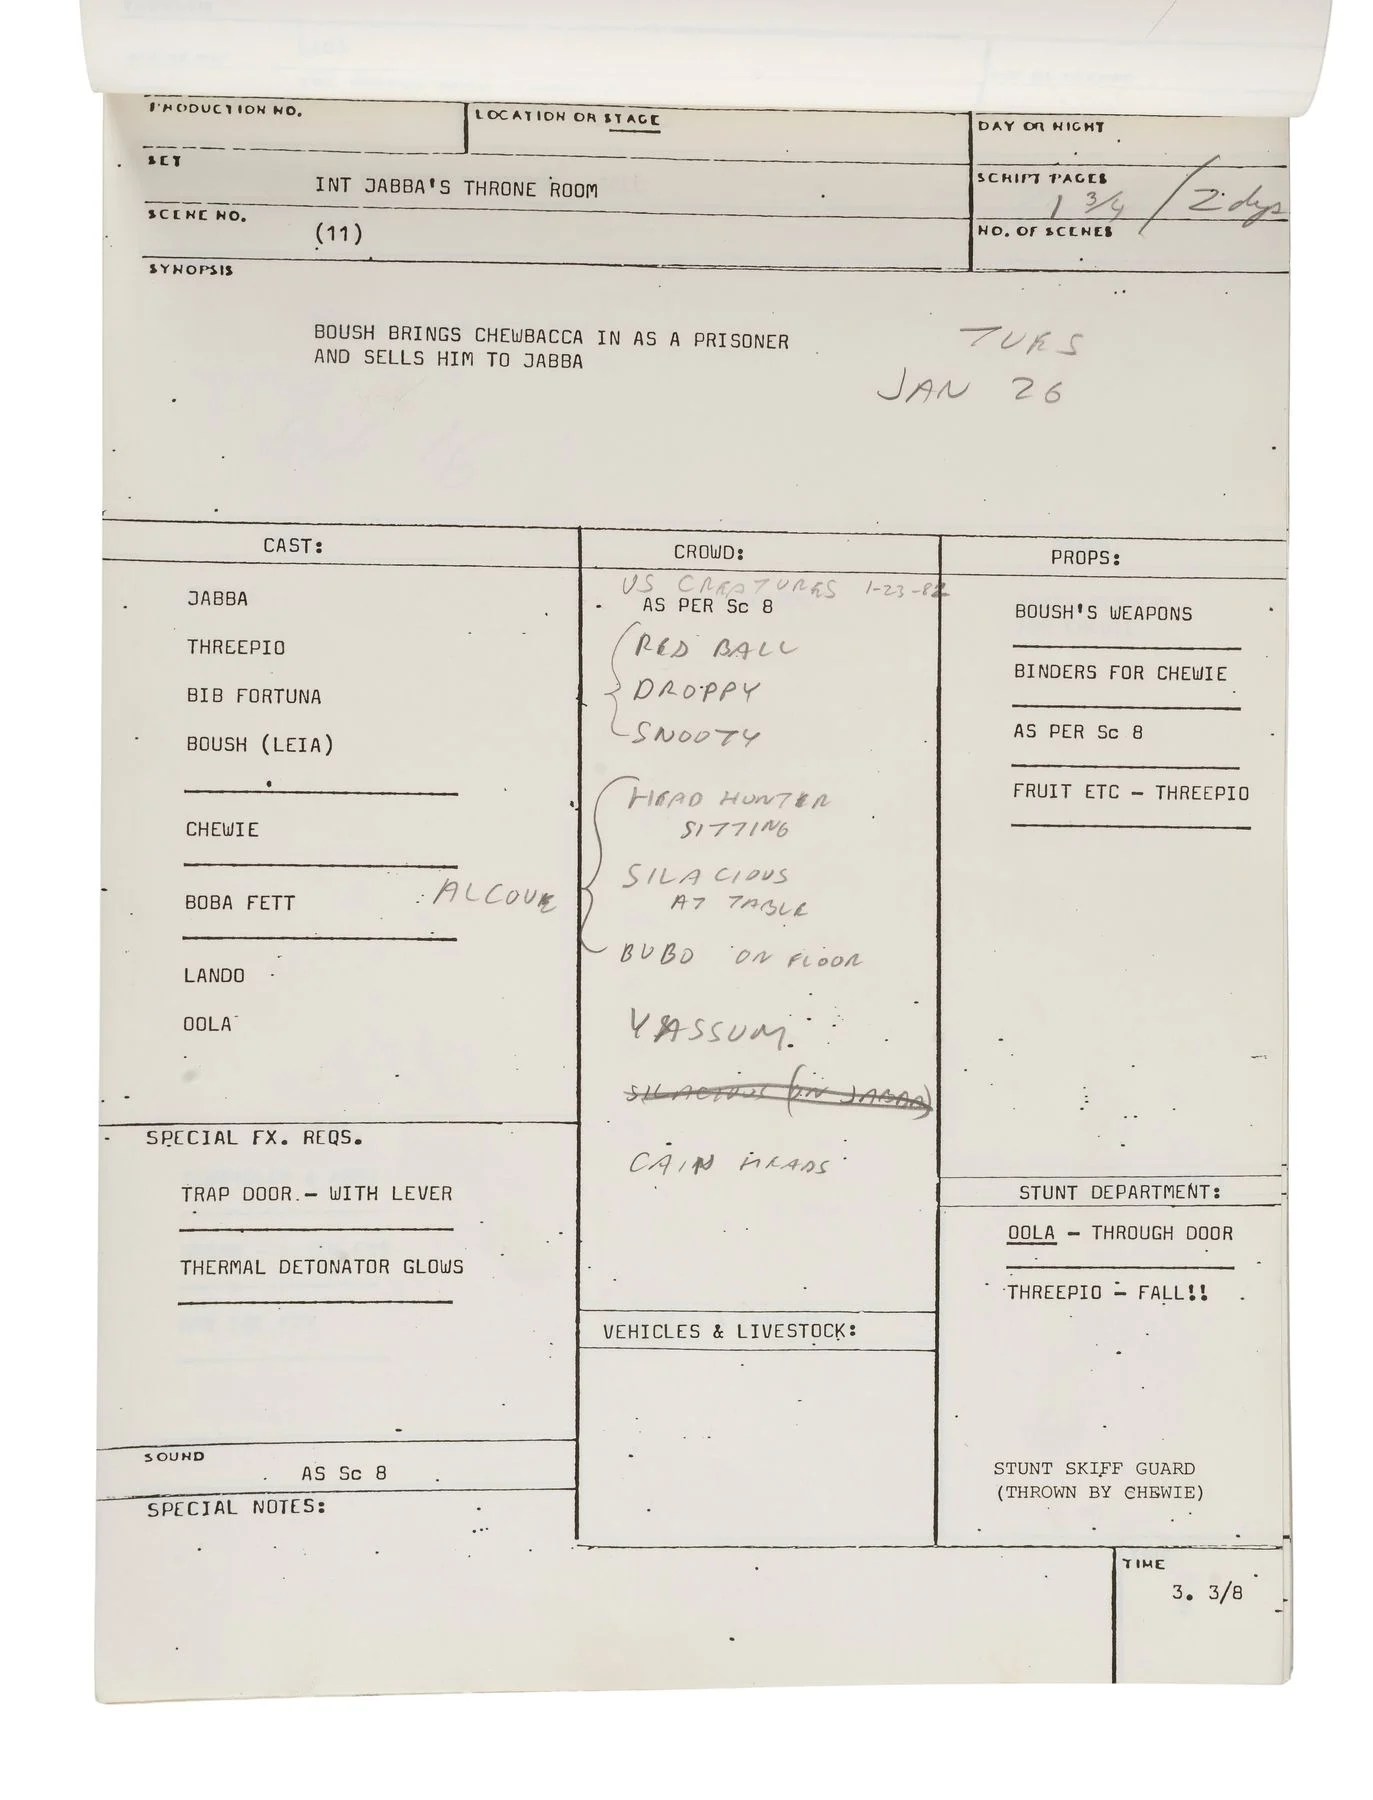 PRODUCTION NO.
LOCATION OR STAGE
DAY OR NIGHT
SET
INT JABBA'S THRONE ROOM
SCRIPT PAGES
1 3/4 / 2 dys
SCENE NO.
(11)
NO. OF SCENES
SYNOPSIS
BOUSH BRINGS CHEWBACCA IN AS A PRISONER
AND SELLS HIM TO JABBA
TUES
JAN 26
CAST:
JABBA
THREEPIO
BIB FORTUNA
BOUSH (LEIA)
CHEWIE
BOBA FETT ALCOVE
LANDO
OOLA
CROWD:
US CREATURES 1-23-82
AS PER Sc 8
RED BALL
DROPPY
SNOOTY
HEAD HUNTER
SITTING
SILACIOUS
AT TABLE
BUBO ON FLOOR
YASSUM.
SILACIOUS (ON JABBA)
CAIN HEADS
PROPS:
BOUSH'S WEAPONS
BINDERS FOR CHEWIE
AS PER Sc 8
FRUIT ETC - THREEPIO
SPECIAL FX. REQS.
TRAP DOOR.- WITH LEVER
THERMAL DETONATOR GLOWS
VEHICLES & LIVESTOCK:
STUNT DEPARTMENT:
OOLA - THROUGH DOOR
THREEPIO - FALL!!
STUNT SKIFF GUARD
(THROWN BY CHEWIE)
SOUND
AS Sc 8
SPECIAL NOTES:
TIME
3. 3/8